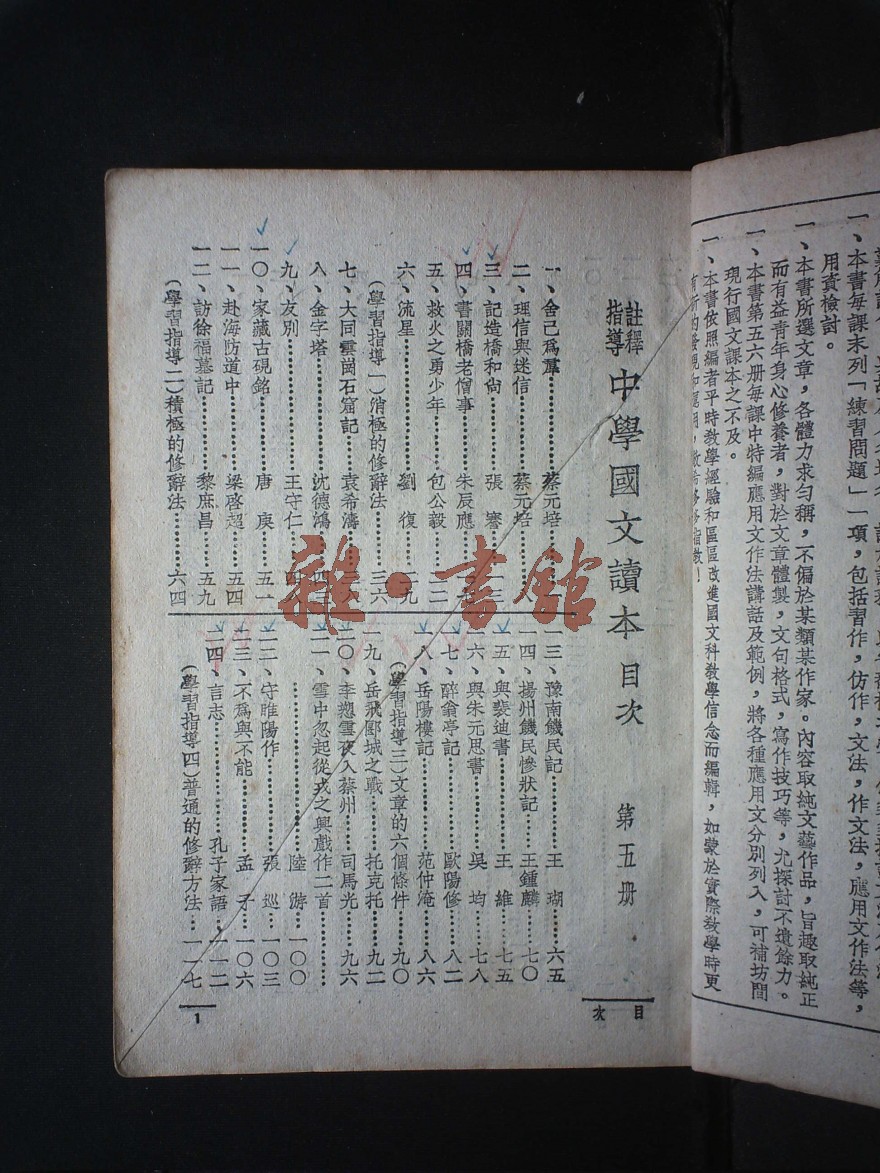 一、本書每課末列「練習問題」一項，包括習作，仿作，文法，作文法，應用文作法等，
用責檢討。
一、本書所選文章，各體力求勻稱，不偏於某類某作家。內容取純文藝作品，旨趣取純正
而有益青年身心修養者，對於文章體製，文句格式，寫作技巧等，尤探討不遺餘力。
一、本書第五六册每課中特編應用文作法講話及範例，將各種應用文分別列入，可補坊間
現行國文課本之不及。
一、本書依照編者平時教學經驗和區區改進國文科教學信念而編輯，如蒙於實際教學時更
註釋
指導
中學國文讀本 目次 第五册
目次
一、舍己爲羣 蔡元培
二、理信與迷信 蔡元培 八
三、記造橋和尙 張謇 一三
四、書關橋老僧事 朱辰應
五、救火之勇少年 包公毅 二二
六、流星 劉復 二九
（學習指導一）消極的修辭法 三六
七、大同雲崗石窟記 袁希濤
八、金字塔 沈德鴻
九、友別 王守仁
一〇、家藏古硯銘 唐庚 五一
一一、赴海防道中 梁啓超 五四
一二、訪徐福墓記 黎庶昌 五九
（學習指導二）積極的修辭法 六四
一三、豫南饑民記 王瑚 六五
一四、揚州饑民慘狀記 王鍾麟 七〇
一五、與裴迪書 王維 七五
一六、與朱元思書 吳均 七八
一七、醉翁亭記 歐陽修 八二
一八、岳陽樓記 范仲淹 八六
（學習指導三）文章的六個條件 九〇
一九、岳飛郾城之戰 托克托 九二
二〇、李愬雪夜入蔡州 司馬光 九六
二一、雪中忽起從戎之興戲作二首
陸游 一〇〇
二二、守睢陽作 張巡 一〇三
二三、不爲與不能 孟子 一〇六
二四、言志 孔子家語 一一二
（學習指導四）普通的修辭方法 一一七
1
雜·書館